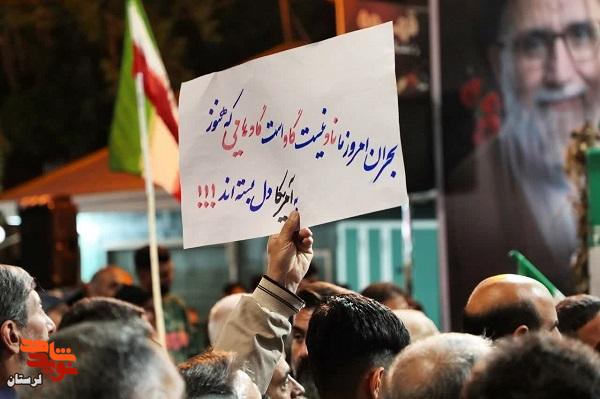 بحران امروز ما ناو نیست گاو است گاوهایی که هنوز
به آمریکا دل بسته اند !!!
لرستان